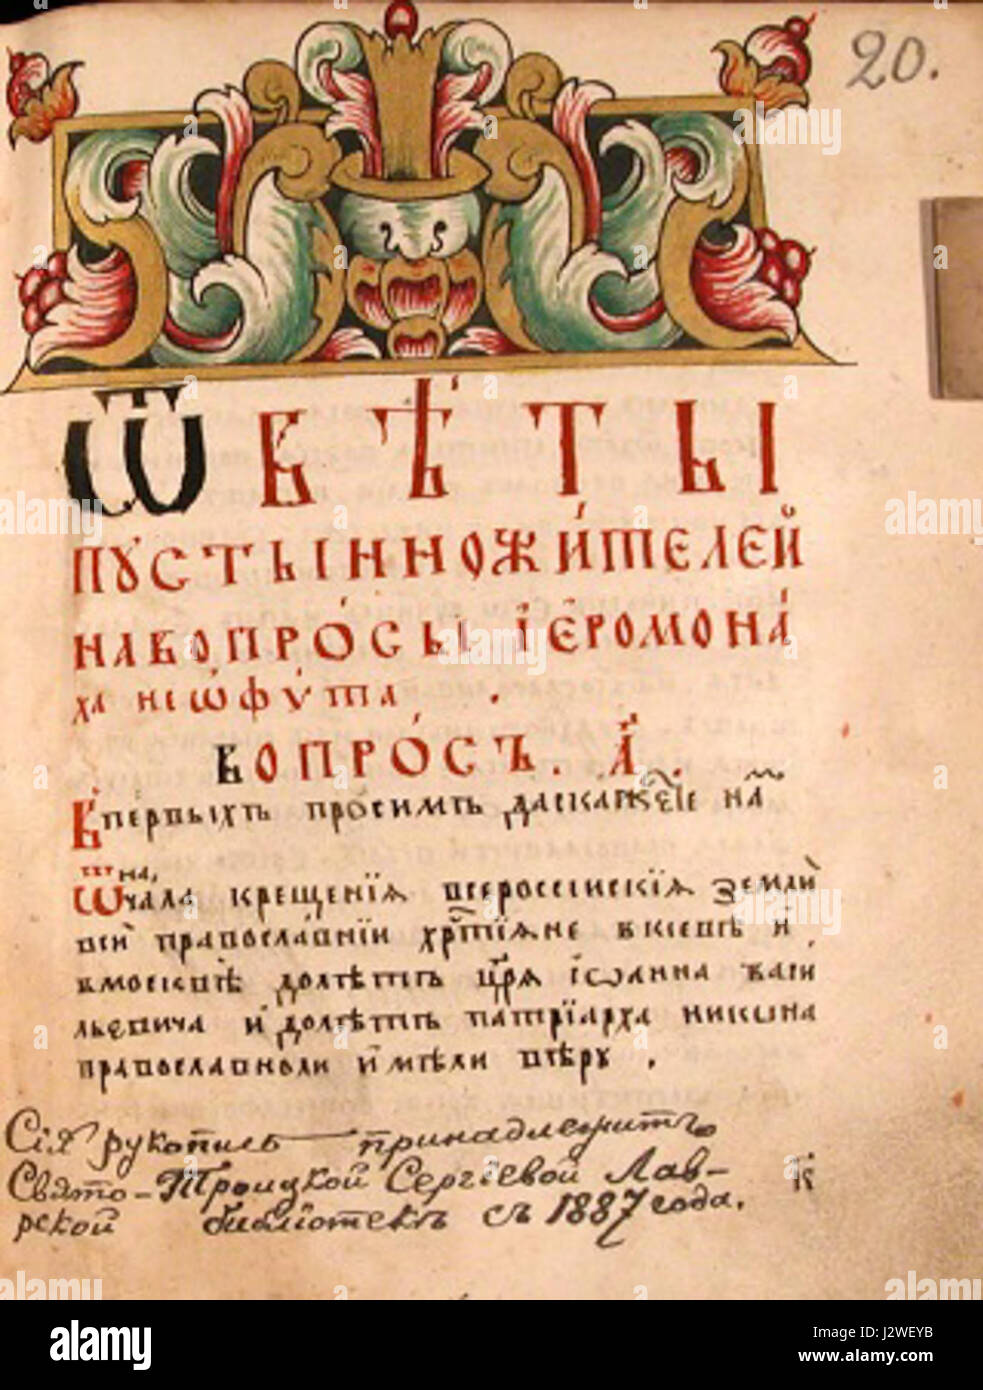 20.
Ѿвѣты
пустынножи́телей
на вопро́сы і҆еромона́
ха неѡфѵта .
Вопро́съ. а҃.
Впервыхъ про́симъ да скажетсѧ на́мъ
на,
ѿчала крещенїѧ всероссиискїѧ земли
вси православнїи хр҃тїѧне в киевѣ и
в московѣ до лѣтъ цр҃ѧ іѡанна васи
льевича и до лѣтъ патрїарха никона
православноли имѣли вѣру .
Сія рукопись принадлежитъ
Свято-Троицкой Сергіевой Лав-
рской библіотекѣ съ 1887 года.
alamy
alamy
Image ID: J2WEYB
www.alamy.com